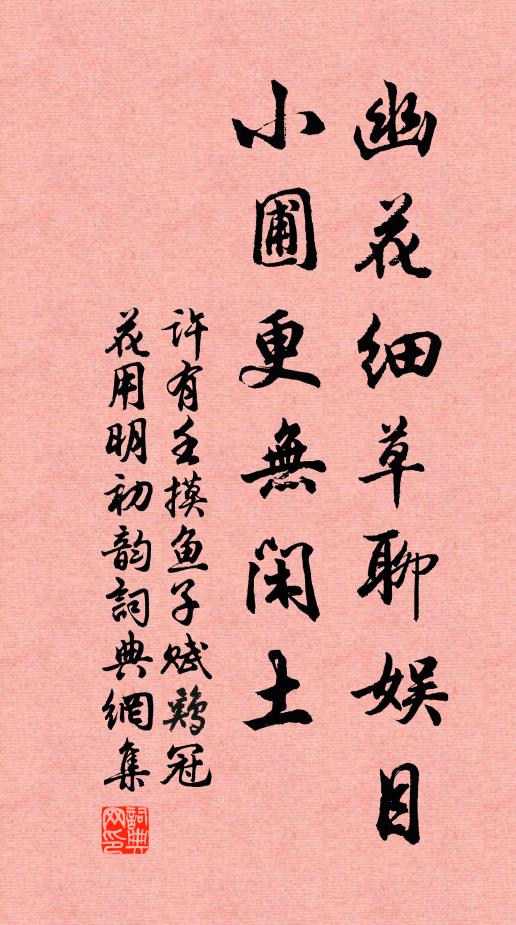 幽花细草聊娱目
小圃更無闲土
许有壬摸鱼子赋鷄冠
花用明初韵詞典網集
詞典网印